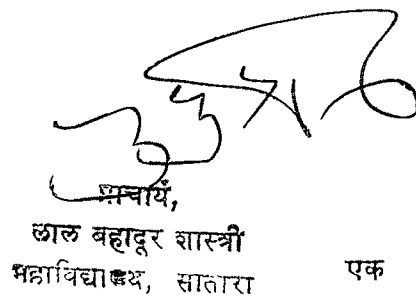 प्राचार्य,
लाल बहादूर शास्त्री
महाविद्यालय, सातारा एक